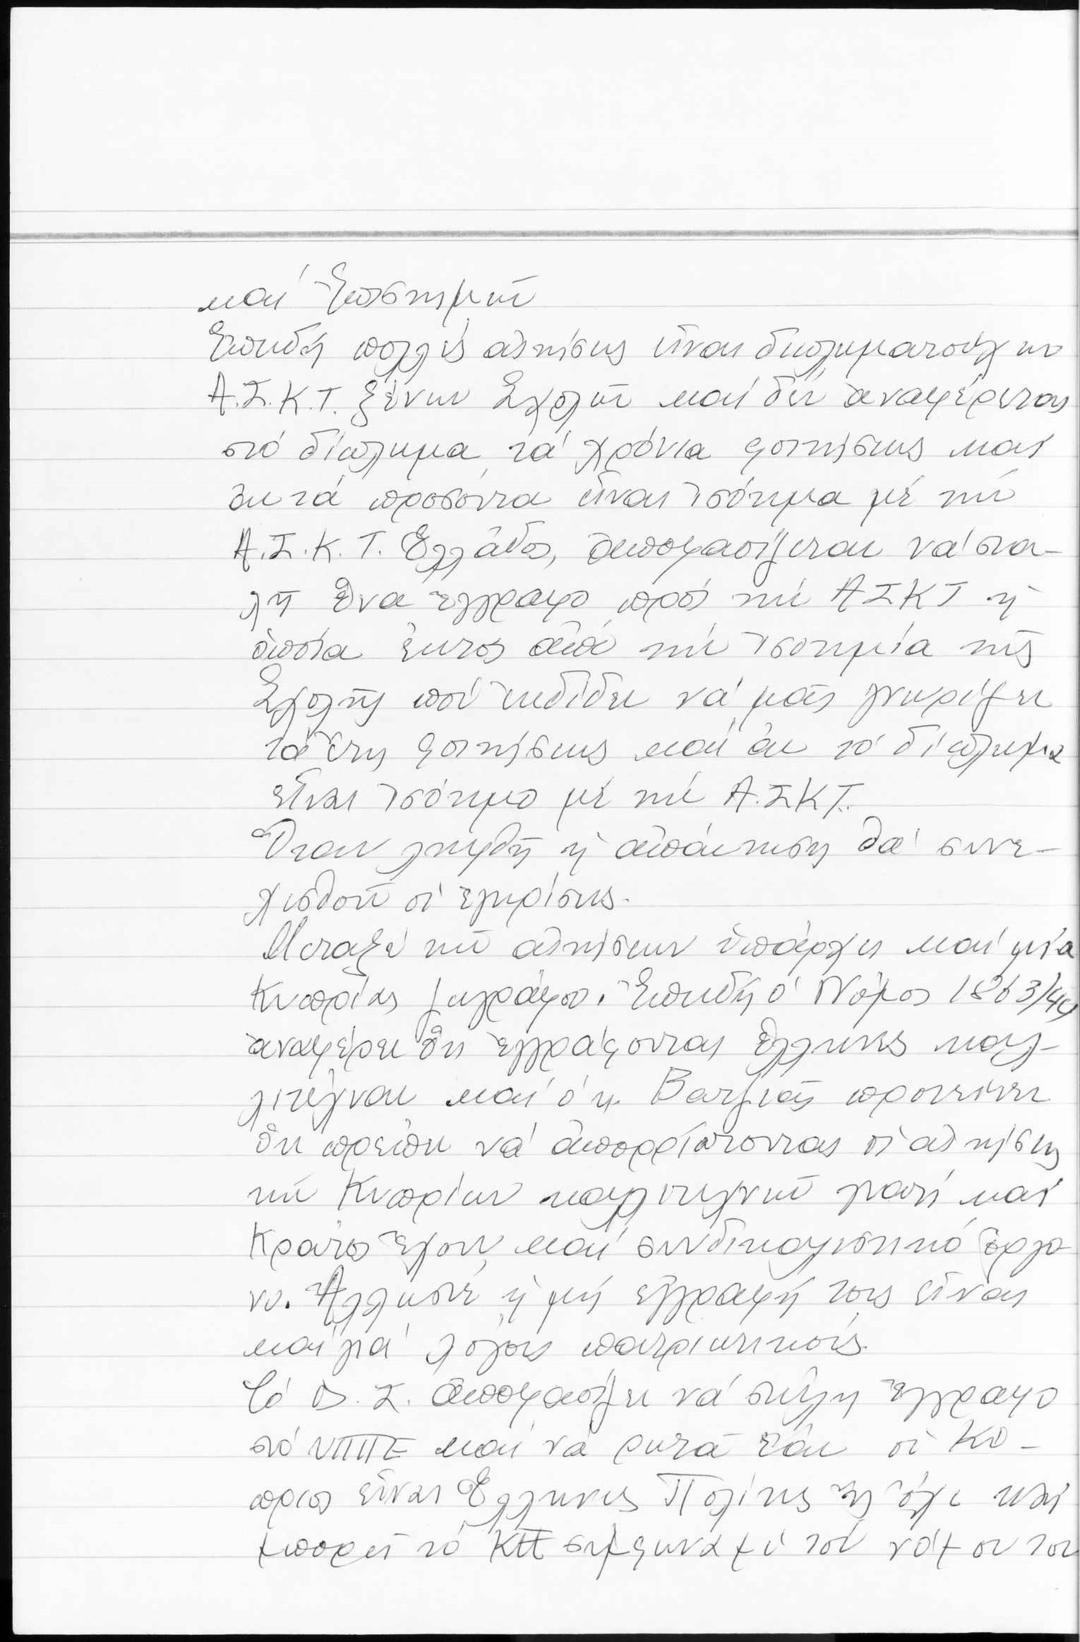 καί Ἐπιστημῶν
Ἐπειδή πολλές αἰτήσεις εἶναι διπλωματούχων
Α.Σ.Κ.Τ. ξένων Σχολῶν καί δέν ἀναφέρεται
στό δίπλωμα τά χρόνια φοιτήσεως καί
ἄν τά προσόντα εἶναι ἰσότιμα μέ τήν
Α.Σ.Κ.Τ. Ἑλλάδος, ἀποφασίζεται νά στα-
λῆ ἕνα ἔγγραφο πρός τήν ΑΣΚΤ ἡ
ὁποία ἐκτός ἀπό τήν ἰσοτιμία τῆς
Σχολῆς πού ἐκδίδει νά μᾶς γνωρίζει
τά ἔτη φοιτήσεως καί ἄν τό δίπλωμα
εἶναι ἰσότιμο μέ τήν Α.ΣΚΤ.
Ὅταν ληφθῆ ἡ ἀπάντηση θά συνε-
χισθοῦν οἱ ἐγκρίσεις.
Μεταξύ τῶν αἰτήσεων ὑπάρχει καί μιά
Κυπρίας ζωγράφου. Ἐπειδή ὁ Νόμος 1863/44
ἀναφέρει ὅτι ἐγγράφονται Ἕλληνες καλ-
λιτέχναι καί ὁ κ. Βατζιᾶς προτείνει
ὅτι πρέπει νά ἀπορρίπτονται οἱ αἰτήσεις
τῶν Κυπρίων καλλιτεχνῶν γιατί καί
Κράτος ἔχουν καί συνδικαλιστικό ὄργα-
νο. Ἄλλωστε ἡ μή ἐγγραφή τους εἶναι
καί γιά λόγους πατριωτικούς.
Τό Δ.Σ. ἀποφασίζει νά στείλη ἔγγραφο
στό ΥΠΠΕ καί νά ρωτᾶ ἐάν οἱ Κύ-
πριοι εἶναι Ἕλληνες Πολίτες ἤ ὄχι καί
μπορεῖ τό ΚΠ σύμφωνα μέ τόν νόμον του